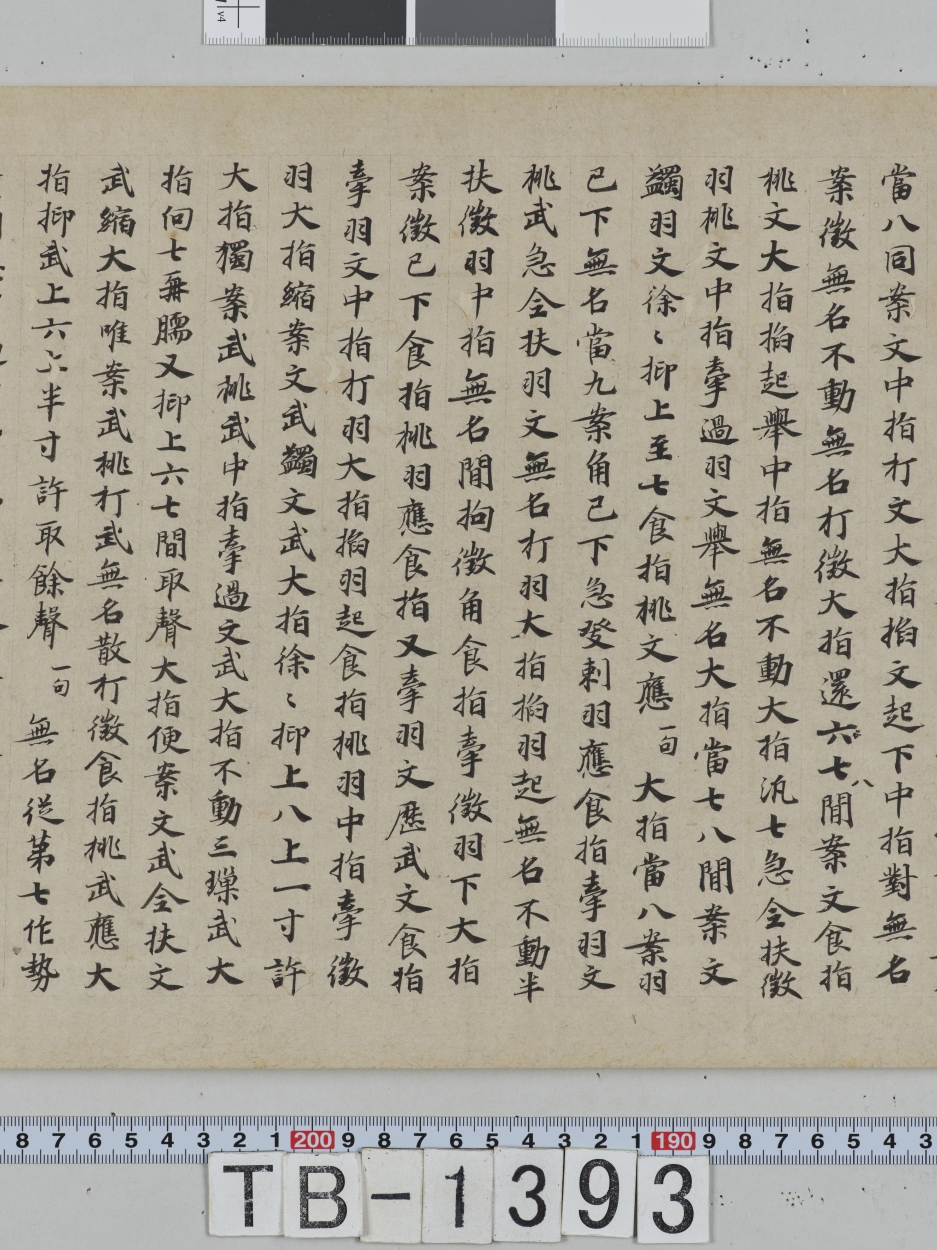 當八同案文中指打文大指掐文起下中指對無名
案徵無名不動無名打徵大指還六七八間案文食指
桃文大指掐起舉中指無名不動大指汎七急全扶徵
羽桃文中指牽過羽文舉無名大指當七八間案文
蠲羽文徐〻抑上至七食指桃文應一句大指當八案羽
已下無名當九案角已下急發刺羽應食指牽羽文
桃武急全扶羽文無名打羽大指掐羽起無名不動半
扶徵羽中指無名間拘徵角食指牽徵羽下大指
案徵已下食指桃羽應食指又牽羽文歷武文食指
牽羽文中指打羽大指掐羽起食指挑羽中指牽徵
羽大指縮案文武蠲文武大指徐〻抑上八上一寸許
大指獨案武桃武中指牽過文武大指不動三㻿武大
指問七再臑又抑上六七間取聲大指便案文武全扶文
武縮大指唯案武桃打武無名散打徵食指挑武應大
指抑武上六上半寸許取餘聲一句無名從第七作勢
8 7 6 5 4 3 2 1 200 9 8 7 6 5 4 3 2 1 190 9 8 7 6 5 4 3
TB-1393